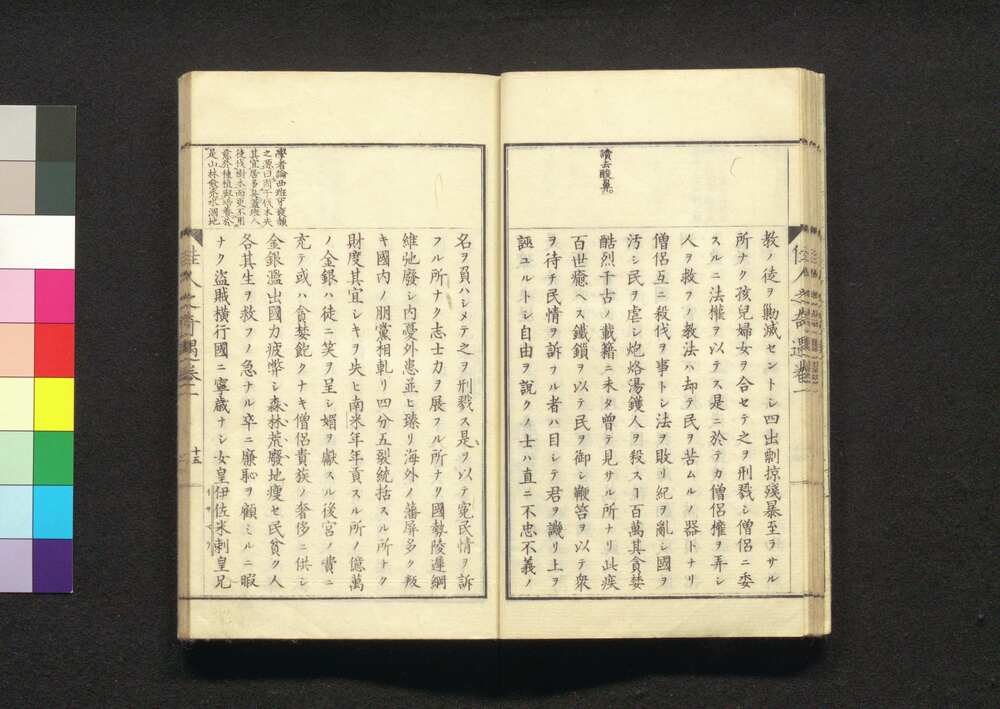 讀去酸鼻。
教ノ徒ヲ勦滅セントシ四出剽掠殘暴至ラサル
所ナク孩兒婦女ヲ合セテ之ヲ刑戮シ僧侶ニ委
スルニ法權ヲ以テス是ニ於テカ僧侶權ヲ弄シ
人ヲ救フノ教法ハ却テ民ヲ苦ムルノ器トナリ
僧侶互ニ殺伐ヲ事トシ法ヲ敗リ紀ヲ亂シ國ヲ
汚シ民ヲ虐シ炮烙湯鑊人ヲ殺スヿ百萬其貪婪
酷烈千古ノ載籍ニ未タ曾テ見サル所ナリ此疾
百世癒ヘス鐵鎖ヲ以テ民ヲ御シ鞭笞ヲ以テ衆
ヲ待チ民情ヲ訴フル者ハ目シテ君ヲ譏リ上ヲ
誣ユルトシ自由ヲ說クノ士ハ直ニ不忠不義ノ
佳人之奇遇卷一
名ヲ負ハシメテ之ヲ刑戮ス是ヲ以テ寃民情ヲ訴
フル所ナク志士力ヲ展フル所ナク國勢陵遲綱
維弛廢シ內憂外患並ヒ臻リ海外ノ藩屏多ク叛
キ國內ノ朋黨相軋リ四分五裂統括スル所ナク
財度其宜シキヲ失ヒ南米年年貢スル所ノ億萬
ノ金銀ハ徒ニ笑ヲ呈シ媚ヲ獻スル後宮ノ費ニ
充テ或ハ貪婪飽クナキ僧侶貴族ノ奢侈ニ供シ
金銀濫出國力疲弊シ森林荒廢地瘦セ民貧ク人
各其生ヲ救フノ急ナル卒ニ廉恥ヲ顧ミルニ暇
ナク盜賊橫行國ニ寧歲ナシ女皇伊佐米剌皇兄
學者論西班牙衰頽
之源曰因于伐木夫
其宜居多
徒伐樹木而更不用
是山林愈禿水涸地
佳人之奇遇卷一
十五